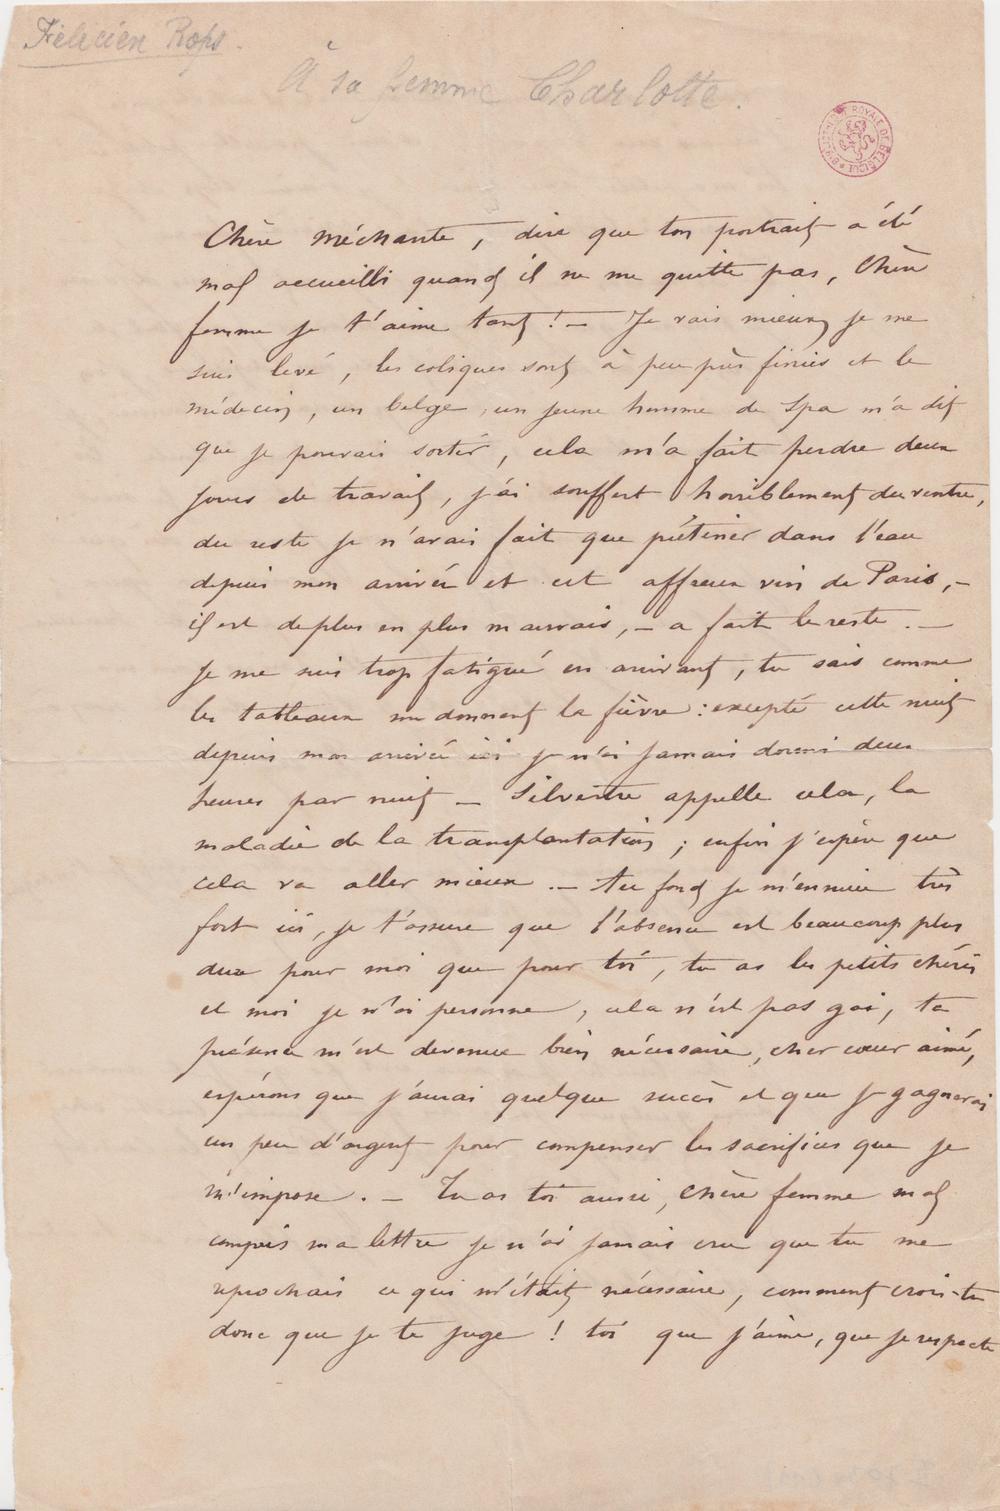 Félicien Rops.
À sa femme Charlotte.
BIBLIOTHÈQUE ROYALE DE BELGIQUE
Chère méchante, dire que ton portrait a été
mal accueilli quand il ne me quitte pas, Chère
femme je t'aime tant ! — Je vais mieux, je me
suis levé, les coliques sont à peu près finies et le
médecin, un belge, un jeune homme de Spa m'a dit
que je pouvais sortir, cela m'a fait perdre deux
jours de travail, j'ai souffert horriblement du ventre,
du reste je n'avais fait que piétiner dans l'eau
depuis mon arrivée et cet affreux vin de Paris, —
il est de plus en plus mauvais, — a fait le reste. —
Je me suis trop fatigué en arrivant, tu sais comme
les tableaux me donnent la fièvre : excepté cette nuit
depuis mon arrivée ici je n'ai jamais dormi deux
heures par nuit — Silvestre appelle cela, la
maladie de la transplantation ; enfin j'espère que
cela va aller mieux. — Au fond je m'ennuie très
fort ici, je t'assure que l'absence est beaucoup plus
dure pour moi que pour toi, tu as les petits chéris
et moi je n'ai personne, cela n'est pas gai, ta
présence m'est devenue bien nécessaire, cher cœur aimé,
espérons que j'aurai quelque succès et que je gagnerai
un peu d'argent pour compenser les sacrifices que je
m'impose. — Tu as toi aussi, chère femme mal
compris ma lettre je n'ai jamais cru que tu me
reprochais ce qui m'était nécessaire, comment crois-tu
donc que je te juge ! toi que j'aime, que je respecte